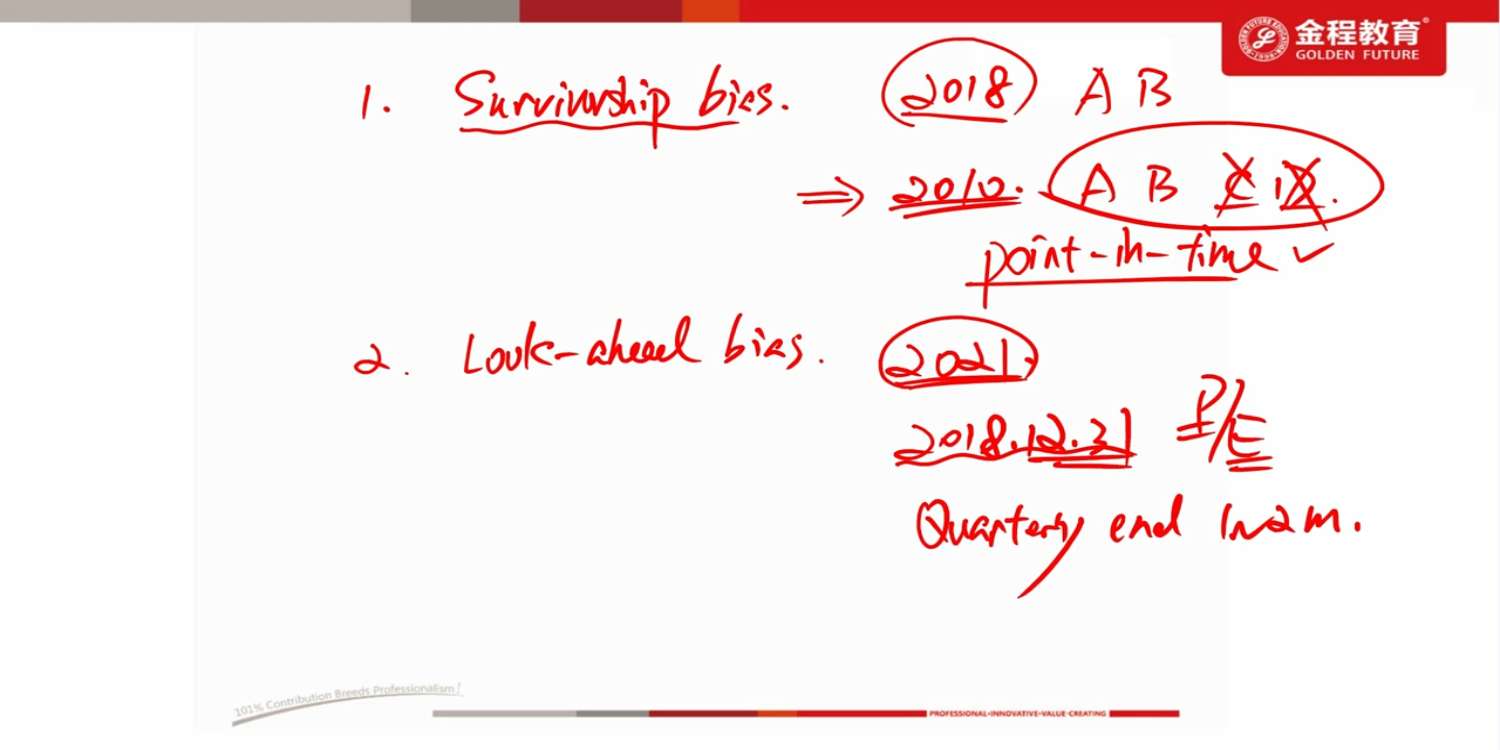 金程教育
GOLDEN FUTURE
1. Survivorship bias. 2018 A B
⇒ 2010. A B C D.
point-in-time ✓
2. Look-ahead bias. 2021.
2018.12.31 P/E
Quarterly end 1~2m.
101% Contribution Breeds Professionalism!
PROFESSIONAL·INNOVATIVE·VALUE-CREATING